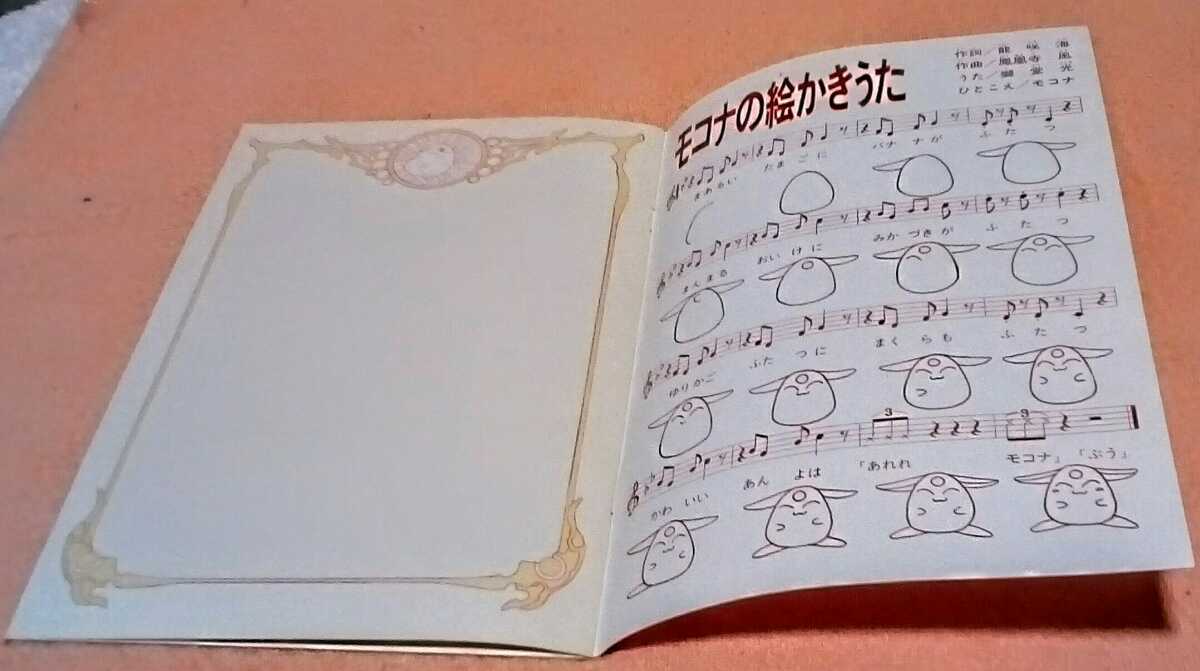 モコナの絵かきうた
作詞／龍咲海
作曲／鳳凰寺風
うた／獅堂光
ひとこえ／モコナ
まあるい たまごに バナナが ふたつ
まんまる おいけに みかづきが ふたつ
ゆりかご ふたつに まくらも ふたつ
3 3
かわいい あんよは 「あれれ モコナ」「ぷう」